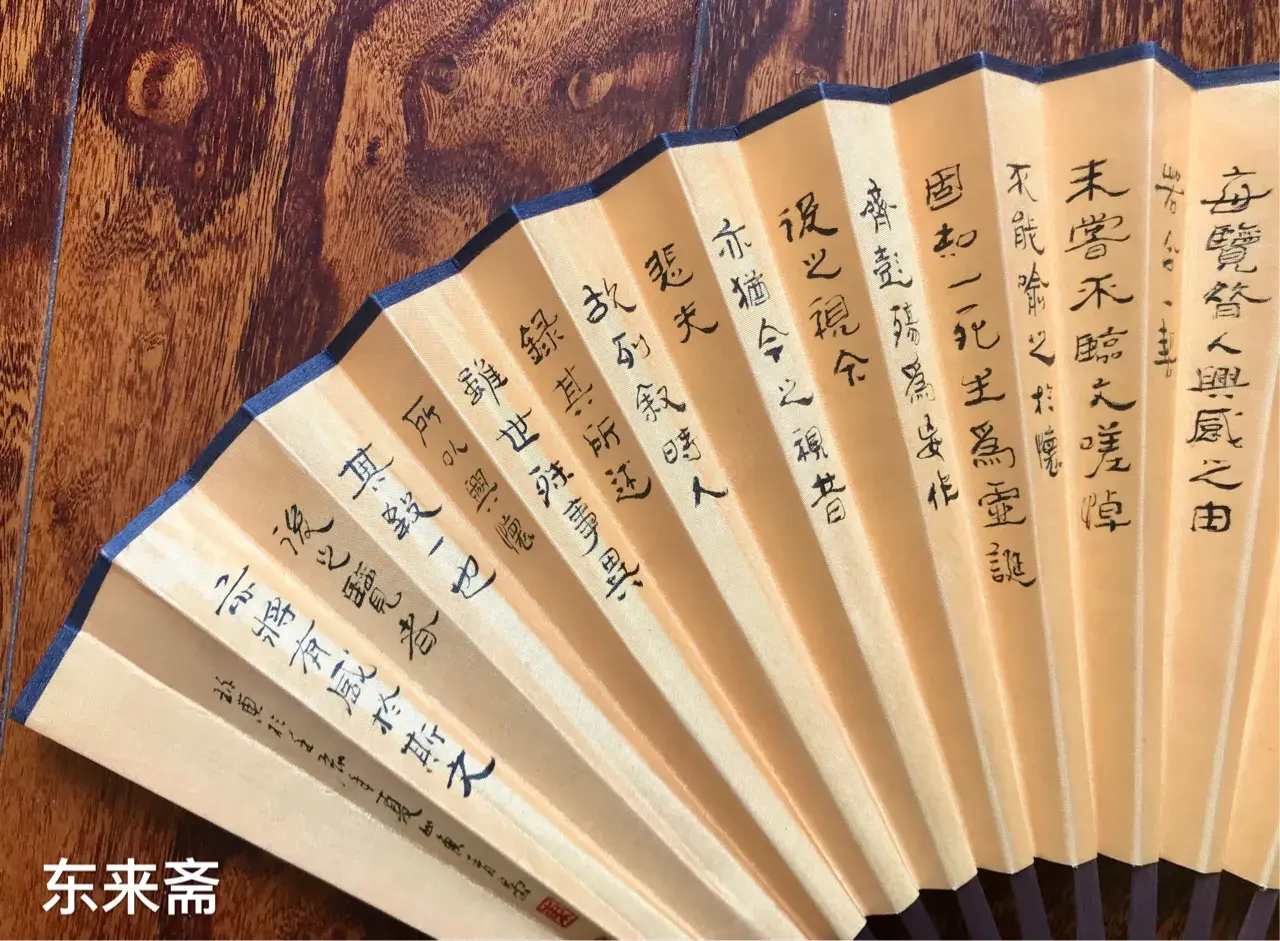 每覽昔人興感之由
若合一契
未嘗不臨文嗟悼
不能喻之於懷
固知一死生為虛誕
齊彭殤為妄作
後之視今
亦猶今之視昔
悲夫
故列敘時人
錄其所述
雖世殊事異
所以興懷
其致一也
後之覽者
亦將有感於斯文
东来斋